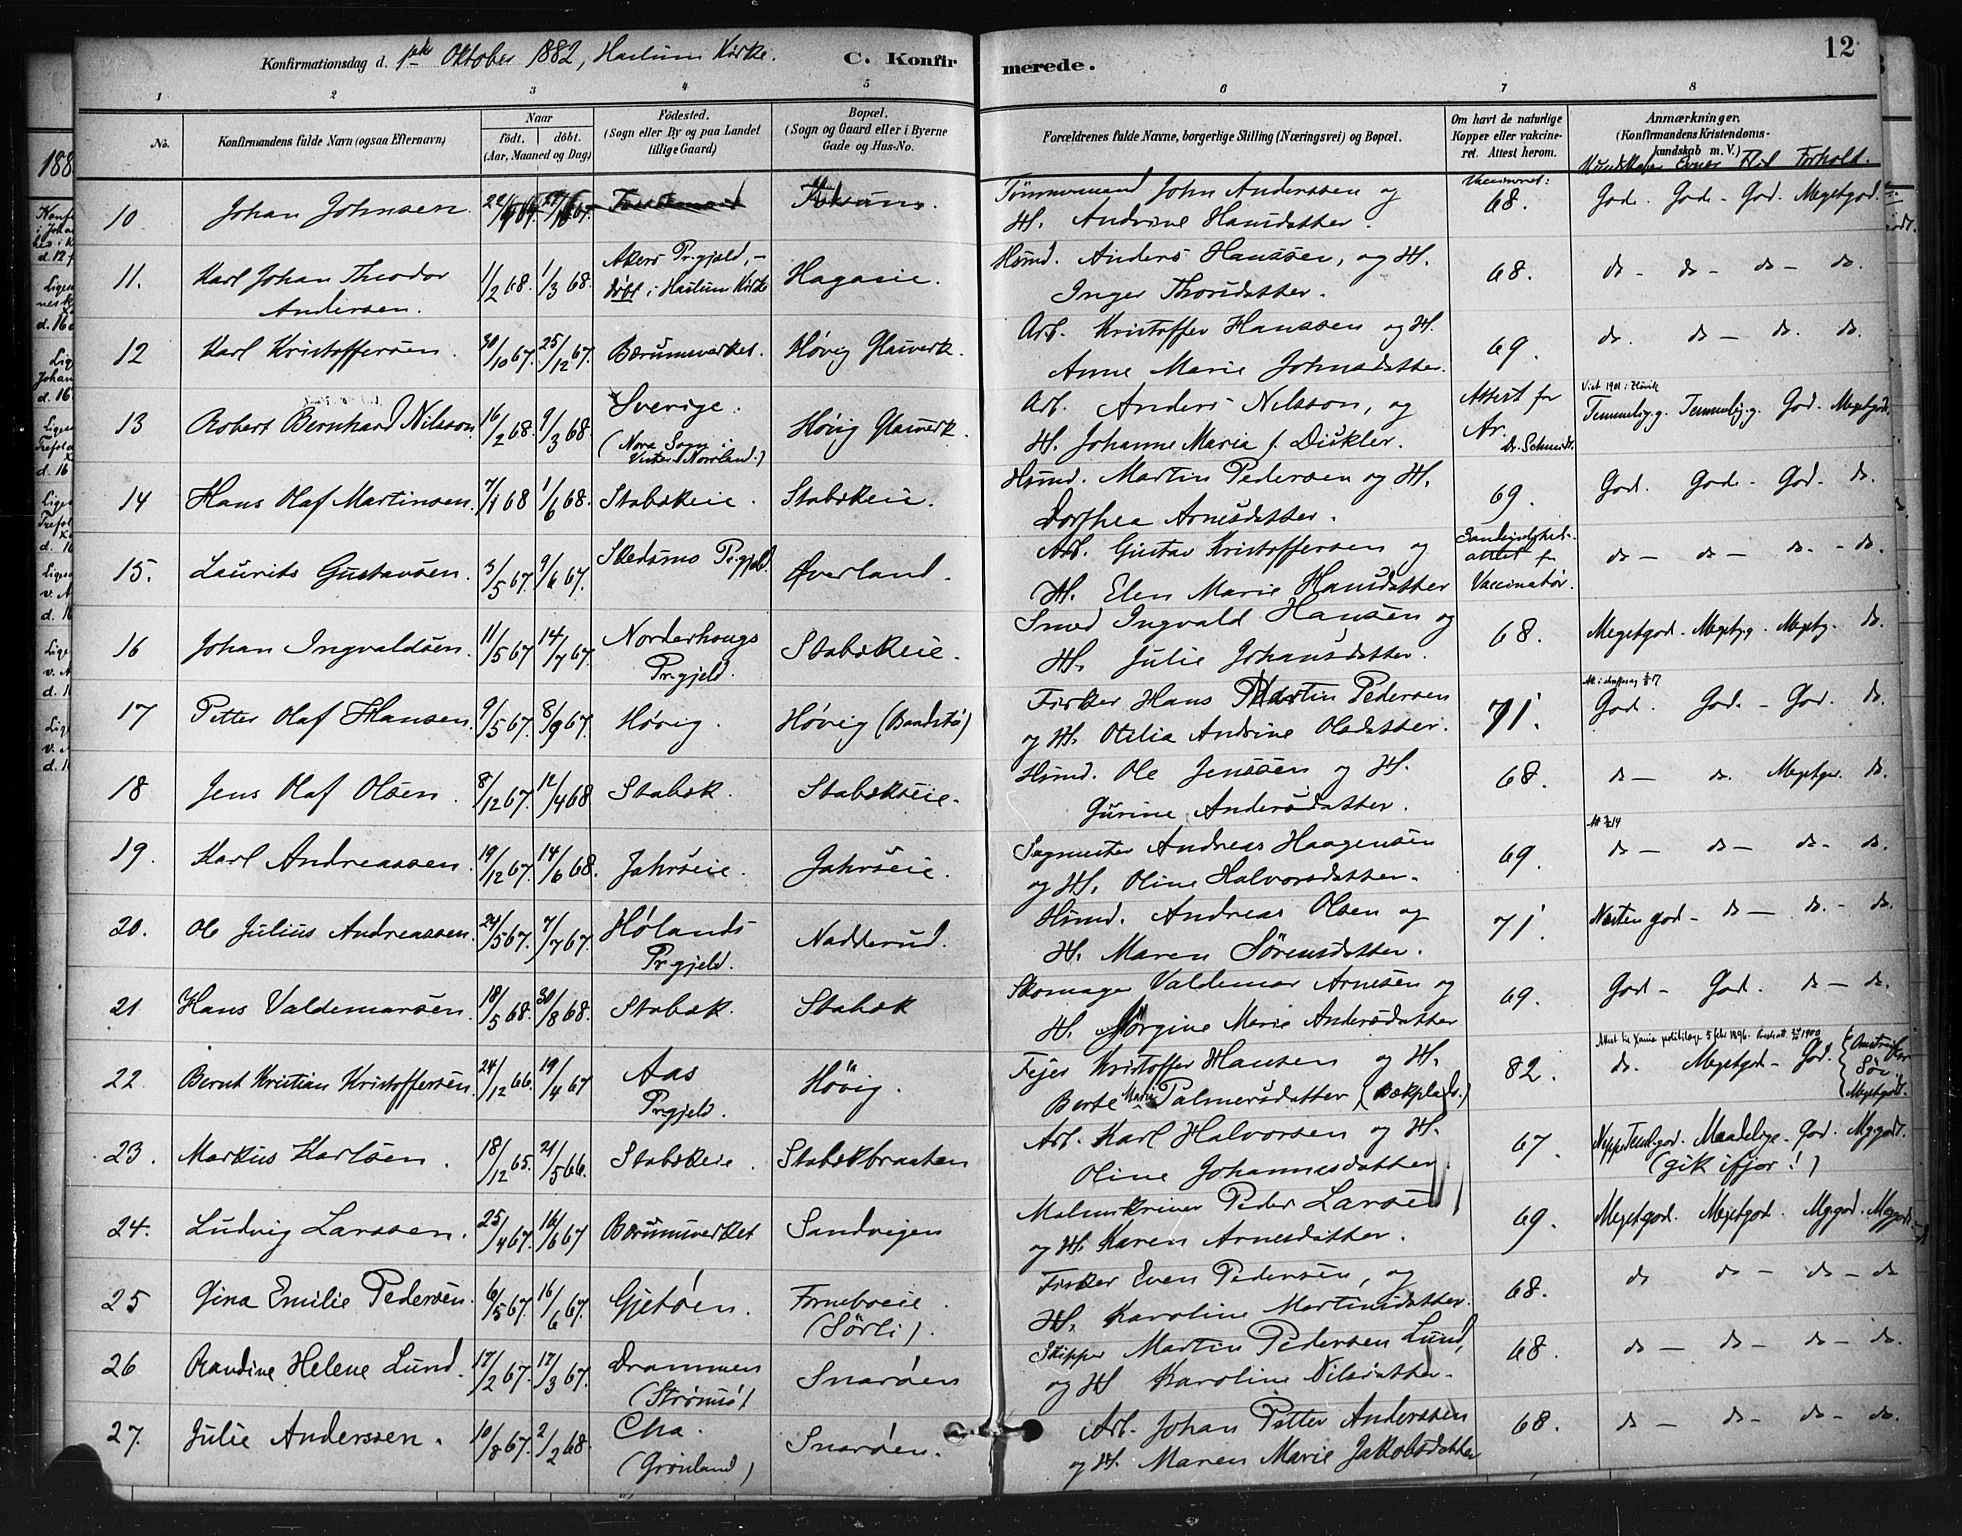 Konfirmationsdag d. 1ste Oktober 1882, Haslum Kirke. C. Konfirmerede. 12
1 2 3 4 5 6 7 8
No. Konfirmandens fulde Navn (ogsaa Efternavn) Naar født. døbt. (Aar, Maaned og Dag) Fødested. (Sogn eller By og paa Landet tillige Gaard) Bopæl. (Sogn og Gaard eller i Byerne Gade og Hus-No. Forældrenes fulde Navne, borgerlige Stilling (Næringsvei) og Bopæl. Om havt de naturlige Kopper eller vakcineret. Attest herom. Anmærkninger. (Konfirmandens Kristendomskundskab m. V.)
Kundskaber Evner Flid Forhold.
10 Johan Johnsen. Tømmermand John Anderssen og H. Andrine Hansdatter. Vaccineret: 68. God. God - God. Megetgod.
11. Karl Johan Theodor Andersen. 1/2 68. 1/3 68. Akers Prgjeld, - døbt i Haslum Kirke Hagaeie. Hsmd. Anders Hanssen, og H. Inger Thorsdatter. 68. do - do - do - do.
12 Karl Kristoffersen. 30/10 67. 25/12 67. Bærumsverket. Høvig Glasverk. Arb. Kristoffer Hanssen og H. Anne Marie Johnsdatter. 69. do. do - do. do.
13 Robert Bernhard Nilsson. 16/2 68. 9/3 68. Sverige. (Nora Sogn i Vester Norrland.) Høvig Glasverk. Arb. Anders Nilsson, og H. Johanne Maria f. Diskler. Attest for Ar. Dr. Schmidt. Viet 1901 i Høvik Temmelig g. Temmelig g. God. Megetgodt.
14 Hans Olaf Martinsen. 7/1 68 1/6 68. Stabækeie. Stabækeie. Hsmd. Martin Pedersen og H. Dorthea Arnesdatter. 69. God. God - God - do.
15. Laurits Gustavsen. 3/5 67. 9/6 67. Skedsmo Prgjeld. Øverland. Arb. Gustav Kristoffersen og H. Elen Marie Hansdatter Sandsynlighedsattest f Vaccinatør. do - do - do. - do.
16 Johan Ingvaldsen. 11/5 67 14/7 67. Norderhougs Prgjeld. Stabækeie. Smed Ingvald Hansen og H. Julie Johansdatter. 68. Megetgod. Meget g. Meget g. do.
17 Petter Olaf Hansen. 9/5 67. 8/9 67. Høvig. Høvig (Baadstø) Fisker Hans Martin Pedersen og H. Otilia Andrine Olsdatter. 71. God. God. - God. do.
18 Jens Olaf Olsen. 8/12 67. 12/4 68 Stabæk. Stabækseie. Hsmd. Ole Jenssen og H. Gurine Andersdatter. 68. do - do. Meget god. do.
19. Karl Andreassen. 19/12 67. 14/6 68. Jahrseie. Jahrseie. Sagmester Andreas Haagensen og H. Oline Halvorsdatter. 69. do - do - do - do.
20. Ole Julius Andreassen. 24/5 67. 7/7 67 Hølands Prgjeld. Nadderud. Hsmd. Andreas Olsen og H. Maren Sørensdatter. 71. Næsten god - do - do. - do.
21 Hans Valdemarsen. 18/5 68. 30/8 68. Stabæk. Stabæk Skomager Valdemar Arnesen og H. Jørgine Marie Andersdatter 69. God - God. do - do.
22 Bernt Kristian Kristoffersen 24/12 66. 19/4 67 Aas Prgjeld. Høvig. Fejer Kristoffer Hansen og H. Berte Marie Palmersdatter (Bækplads.) 82. do. Megetgod - God. Megetgodt.
23. Markus Karlsen. 18/12 65. 21/5 66. Stabækeie. Stabækbraaten Arb. Karl Halvorsen og H. Oline Johannesdatter. 67. Neppe Teml. god. Maadelige. God. Mg. godt. (gik ifjor!)
24. Ludvig Larssen. 25/4 67. 16/6 67 Bærumsverket Sandvigen Malmskriver Peder Larsen og H. Karen Arnesdatter. 69. Megetgod. Megetgod. Mg. god. Mg. godt.
25 Gina Emilie Pedersen. 6/5 67. 16/6 67. Gjetøen. Forneboeie. (Sørli). Fisker Even Pedersen, og H. Karoline Martinsdatter. 68. do do - do - do
26 Randine Helene Lund. 17/2 67. 17/3 67. Drammen (Strømsø) Snarøen Skipper Martin Pedersen Lund, og H Karoline Nilsdatter. 68. do - do - do - do.
27. Julie Anderssen. 10/8 67. 2/2 68. Cha. (Grønland) Snarøen. Arb. Johan Petter Anderssen og H. Maren Marie Jakobsdatter 68. do - do - do - do.